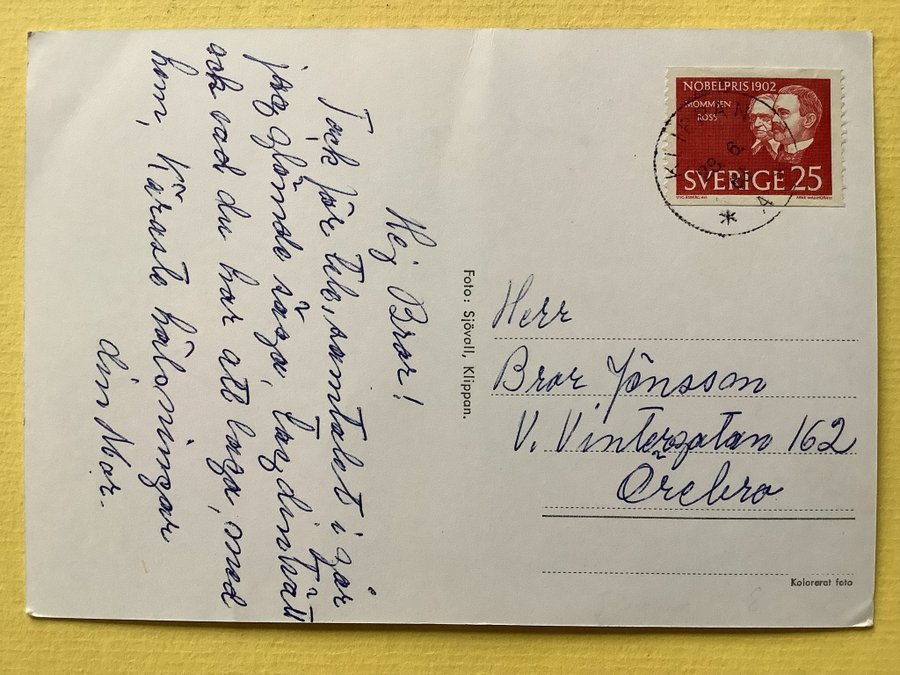 Hej Bror!
Tack för tele,samtalet i går
jag glömde säga, tag din tvätt
och vad du har att laga, med
hem, Käraste hälsningar
din Mor.
Foto: Sjövall, Klippan.
NOBELPRIS 1902
MOMMSEN
ROSS
SVERIGE 25
KLIPPAN
Herr
Bror Jönsson
V. Vintergatan 162
Örebro
Kolorerat foto